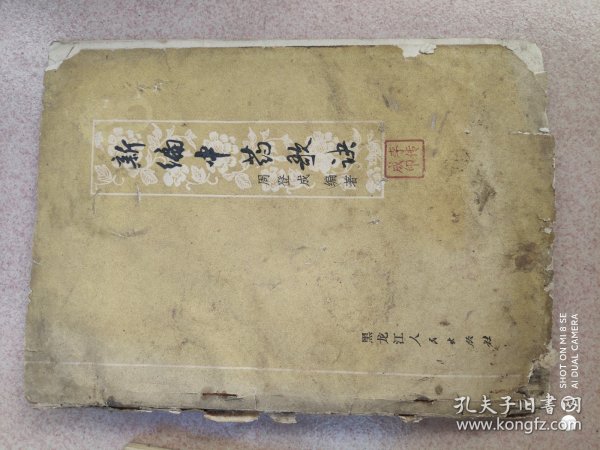 新编中药歌诀
周登成 编著
黑龙江人民出版社
SHOT ON MI 8 SE
AI DUAL CAMERA
孔夫子旧书网
www.kongfz.com